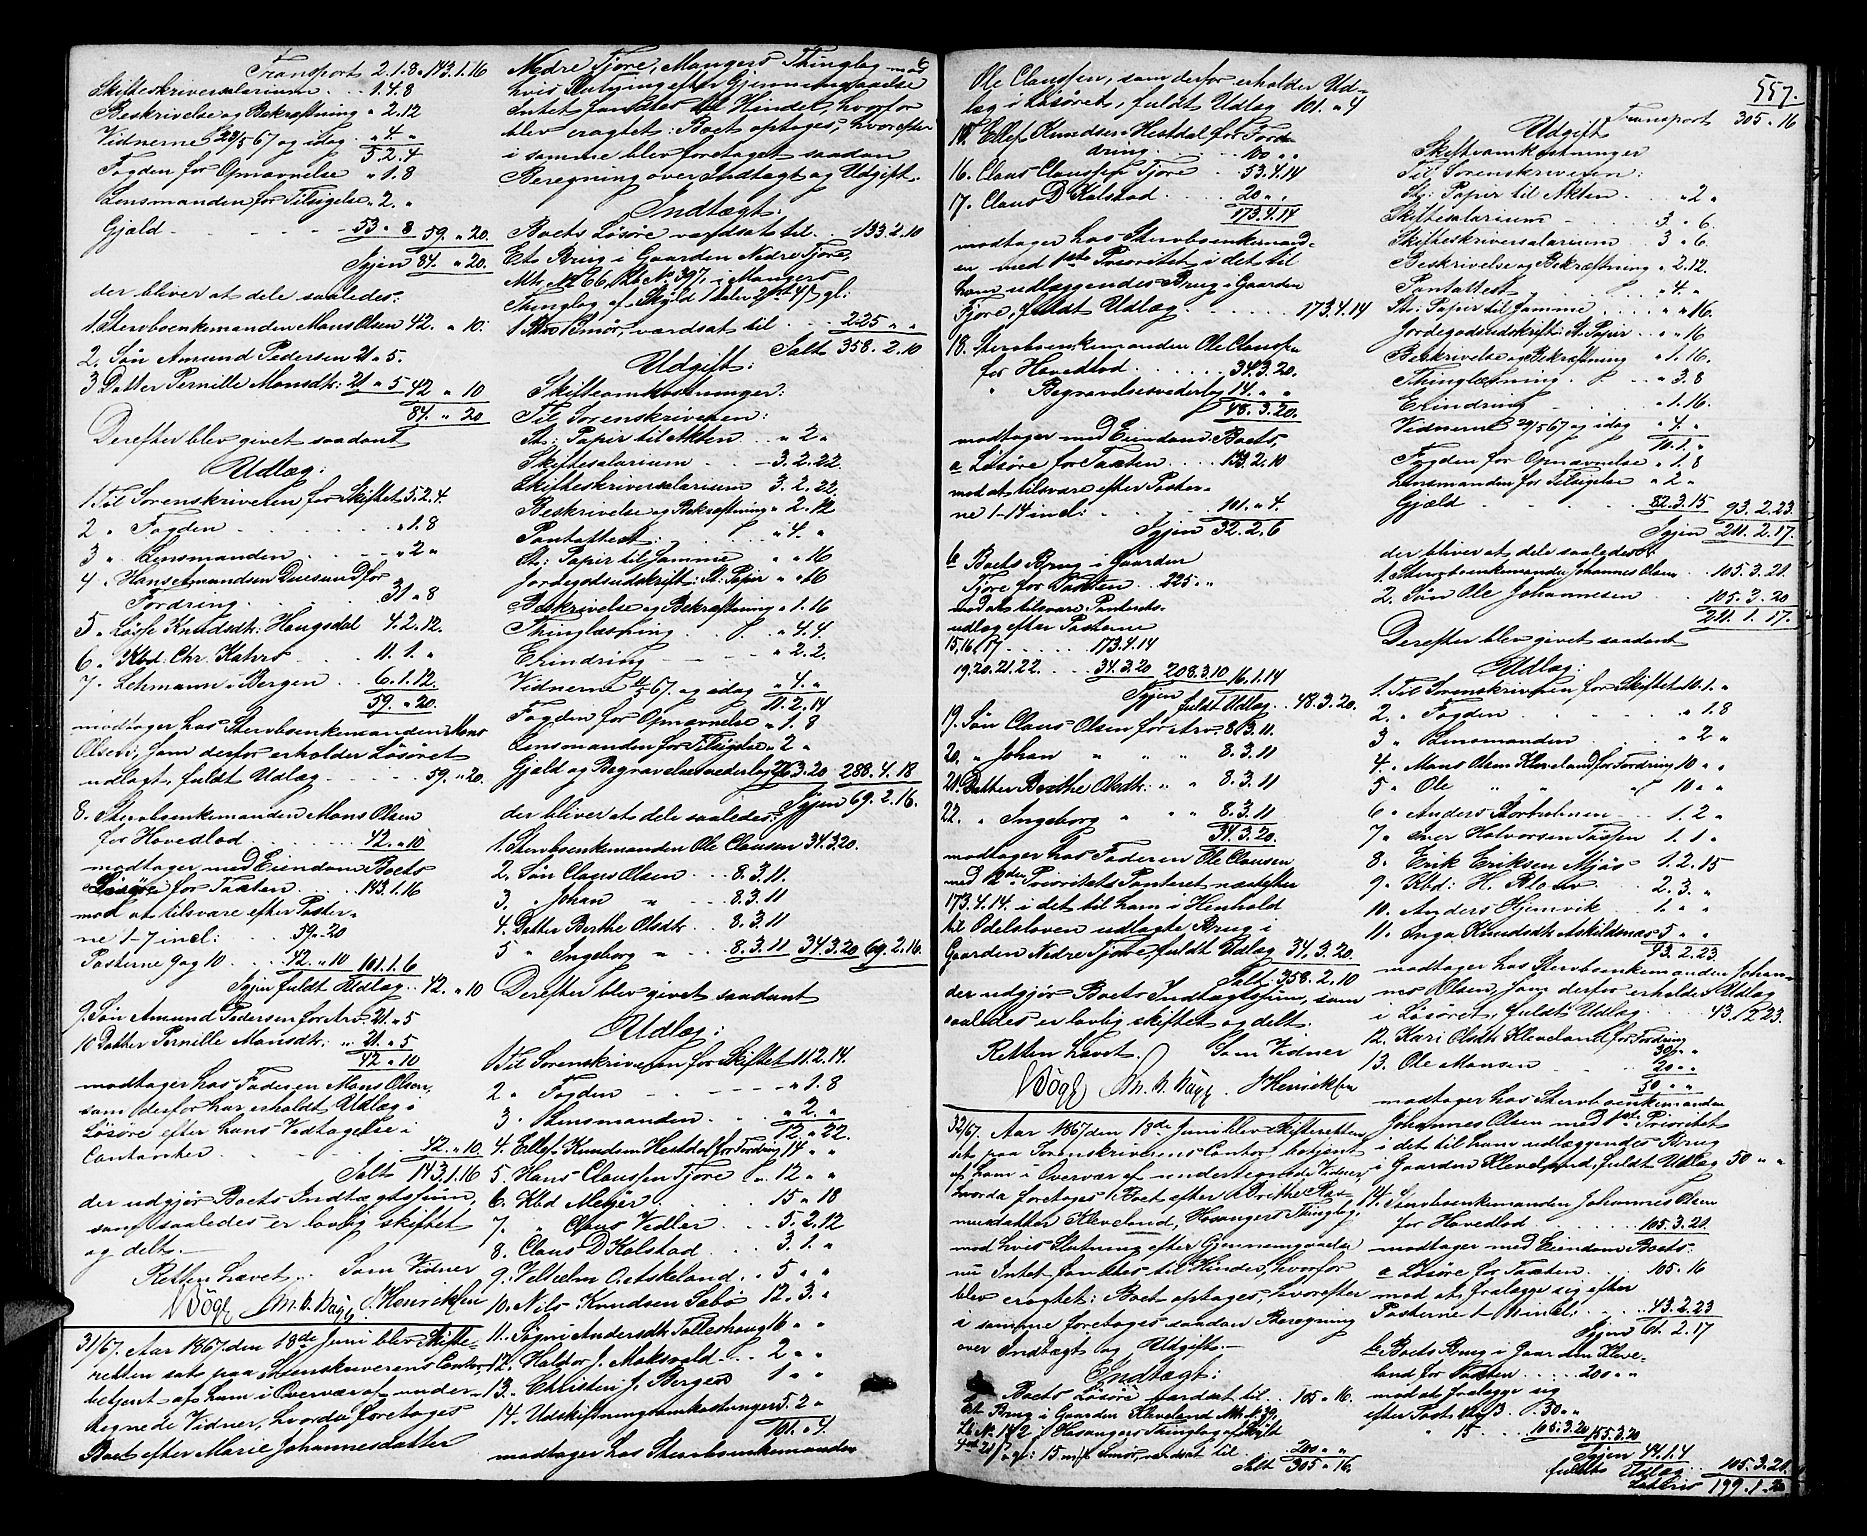 Transport 2.1.8 " 143.1.16
Skifteskriversalarium . . 1.4.8
Beskrivelse og Bekræftning " 2.12
Vidnerne 29/5 67 og idag " 4 "
5.2.4
Fogden for Opnævnelse " 1.8
Lensmanden for Tilsigelse " 2 . "
Gjæld - - - 53 " 8 59. " 20.
Igjen 84. " 20.
der bliver at dele saaledes:
1. Stervboenkemanden Mons Olsen 42. " 10.
2. Søn Amund Pedersen 21 " 5.
3 Datter Pernille Monsdtr: 21 " 5 42 " 10
84. " 20
Derefter blev givet saadant
Udlæg:
1 Til Sorenskriveren for Skiftet 5.2.4.
2 " Fogden " 1.8
3 " Lensmanden " 2 "
4 " Hans Amundsen Duesund for
Fordring 31 " 8
5 " Løsse Knudsdtr: Haugsdal 4.2.12.
6 " Kbd. Chr. Kahrs 11.1. "
7 " Lehmann i Bergen 6.1.12.
59. " 20.
modtager hos Stervboenkemanden Mons
Olsen, som derfor erholder Løsøret
udlagt, fuldt Udlæg 59. " 20.
8. Stervboenkemanden Mons Olsen
for Hovedlod 42. " 10
modtager med Eiendom Boets
Løsøre for Taxten 143.1.16
mod at tilsvare efter Poster-
ne 1-7 incl: 59. " 20
Posterne 9 og 10 42. " 10 101.1.6
Igjen fuldt Udlæg 42. " 10
9. Søn Amund Pedersen for Arv 21 " 5
10 Datter Pernille Monsdtr: " 21 " 5
42 " 10
modtager hos Faderen Mons Olsen,
som derfor har erholdt Udlæg i
Løsøre efter hans Vedtagelse i
Contanter 42. " 10
Ialt 143.1.16
der udgjør Boets Indtægtssum,
som saaledes er lovlig skiftet
og delt.
Retten hævet. Som Vidner
Bøgh M. B. Bøgh J. Henriksen
31/67. Aar 1867 den 18de Juni blev Skifte-
retten sat paa Sorenskriverens Contor,
betjent af ham i Overvær af under-
tegnede Vidner, hvorda foretoges
Boet efter Marie Johannesdatter
Nedre Fjore, Mangers Thinglag mod
hvis Slutning efter Gjennemgaaelse
Intet fandtes til Hinder, hvorfor
blev eragtet: Boet optages, hvorefter
i samme blev foretaget saadan
Beregning over Indtægt og Udgift.
Indtægt:
Boets Løsøre værdsat til . . 133.2.10
Et Brug i Gaarden Nedre Fjore,
Thinglag af Skyld 1 daler 2 ort 4 ß gl:
Smør, værdsat til 225 " "
Ialt 358.2.10
Udgift:
Skifteomkostninger:
Til Sorenskriveren:
St: Papir til Akten . . " 2 "
Skiftesalarium . . 3.2.22.
Skifteskriversalarium 3.2.22.
Beskrivelse og Bekræftning " 2.12
Pantattest: " 4. "
St: Papir til Samme " " 16
Jordegodsudskrift: St. Papir " " 16
Beskrivelse og Bekræftning " 1.16
Thinglæsning " 4.4.
Erindring " 2.2.
Vidnerne 67 og idag " 4. "
11.2.14
Fogden for Opnævnelse " 1.8
Lensmanden for Tilsigelse " 2 "
Gjæld og Begravelsesvederlag 263.20 288.4.18
Igjen 69.2.16.
der bliver at dele saaledes:
1. Stervboenkemanden Ole Clausen 34.3.20.
2. Søn Claus Olsen 8.3.11.
3. " Johan " 8.3.11
4. Datter Berthe Olsdtr. 8.3.11
5 " Ingeborg " 8.3.11 34.3.20 69.2.16.
Derefter blev givet saadant
Udlæg:
1 Til Sorenskriveren for Skiftet 11.2.14.
2 " Fogden " 1.8
3 " Lensmanden " 2. "
12 " 22.
4. Ellef Knudsen Hestdal for Fordring 14 " "
5. Hans Claussen Fjore 12 " "
6. Kbd Meyer 15 " 18
7. " Claus Vedler 5.2.12
8. Claus D Kolstad 3.1. "
9. Velhelm O. Askeland 5 " "
10. Nils Knudsen Sæbø 12.3. "
11. Søgni Andersdtr Tolleshaug 6 " "
12. Haldor J. Moksvold 2 " "
13. Christen J. Bergen 1 " "
14. Udskiftningsomkostninger 5.2 "
101. " 4.
modtager hos Stervboenkemanden
Ole Claussen, som derfor erholder Ud-
læg i Løsøret, fuldt Udlæg 101. " 4
15. Ellef Knudsen Hestdal for Fordr
dring 100 " "
16. Claus Claussen Fjore 53.4.14
17. Claus D Kolstad 20 " "
173.4.14
modtager hos Stervboenkemand-
en med 1ste Prioritet i det til
ham udlæggendes Brug i Gaarden
Fjore, fuldt Udlæg 173.4.14
18. Stervboenkemanden Ole Claussen
for Hovedlod 34.3.20.
" Begravelsesvederlag 14. " "
48.3.20.
modtager med Eiendom Boets,
a Løsøre for Taxten 133.2.10
mod at tilsvare efter Poster-
ne 1-14 incl: 101. " 4.
Igjen 32.2.6
b Boets Brug i Gaarden
Fjore for Taxten 225 " "
mod at tilsvare Panteds-
udlæg efter Posterne
15, 16, 17 173.4.14
19. 20. 21. 22. 34.3.20 208.3.10 16.1.14
Igjen fuldt Udlæg 48.3.20.
19. Søn Claus Olsen for Arv 8.3.11.
20. " Johan " " " 8.3.11
21. Datter Berthe Olsdtr. " " 8.3.11
22. " Ingeborg " " " 8.3.11
34.3.20.
modtager hos Faderen Ole Clausen
med 2den Prioritets Panteret næstefter
173.4.14. i det til ham i Henhold
til Odelsloven udlagte Brug i
Gaarden Nedre Fjore, fuldt Udlæg 34.3.20.
Ialt 358.2.10
der udgjør Boets Indtægtssum, som
saaledes er lovlig skiftet og delt.
Retten hævet. Som Vidner
Bøgh M. B. Bøgh. J Henriksen
32/67. Aar 1867 den 18de Juni blev Skifteretten
sat paa Sorenskriverens Contor, betjent
af ham i Overvær af undertegnede Vidner,
hvorda foretoges Boet efter Brethe Ras-
musdatter Kleveland, Hosangers Thinglag,
mod hvis Slutning efter Gjennemgaaelse
nu Intet fandtes til Hinder, hvorfor
blev eragtet: Boet optages, hvorefter
i samme foretoges saadan Beregning
over Indtægt og Udgift.
Indtægt:
Boets Løsøre værdsat til 105 " 16.
Et Brug i Gaarden Kleveland, Mtr. N 39,
Lb N. 142 i Hosangers Thinglag af Skyld
Smør, værdsat til 200 " "
Ialt 305 " 16.
557.
Transport 305 " 16
Udgift
Skifteomkostninger
Til Sorenskriveren:
St: Papir til Akten " 2 "
Skiftesalarium 3 " 6.
Skifteskriversalarium 3 " 6.
Beskrivelse og Bekræftning " 2.12.
Pantattest " 4. "
St: Papir til Samme " " 16.
Jordegodsudskrift: St. Papir " " 16
Beskrivelse og Bekræftning " 1.16.
Thinglæsning " 3.8
Erindring " 1.16.
Vidnerne 29/5 67 og idag " 4. "
10.1. "
Fogden for Opnævnelse " 1.8
Lensmanden for Tilsigelse " 2 "
Gjæld 82.3.15 93.2.23.
Igjen 211.2.17.
der bliver at dele saaledes:
1. Stervboenkemanden Johannes Olsen 105.3.21.
2. Søn Ole Johannesen 105.3.20
211.2.17.
Derefter blev givet saadant
Udlæg:
1. Til Sorenskriveren for Skiftet 10.1. "
2. " Fogden " 1.8
3 " Lensmanden " 2 "
4. " Mons Olsen Kleveland for Fordring 10 " "
5 " Ole " " " 10 " "
6 " Anders Storholmen 1.2 "
7 " Iver Halvorsen 1.1 "
8. " Erik Eriksen Mjøs 1.2.15
9 " Kbd: H. 2.3. "
10. Anders Hjemvik 1. " "
11. Inga Knudsdtr Askildnæs 5 " "
43.2.23.
modtager hos Stervboenkemanden Johan-
nes Olsen, som derfor erholder Udlæg
i Løsøret, fuldt Udlæg 43.2.23.
12. Kari Olsdtr Kleveland for Fordring
30 " "
13. Ole Monsen 20 " "
50 " "
modtager hos Stervboenkemanden
Johannes Olsen med 1ste Prioritet
i det til ham udlæggendes Brug
i Gaarden Kleveland, fuldt Udlæg 50 " "
14. Stervboenkemanden Johannes Olsen
for Hovedlod 105.3.21.
modtager med Eiendom Boets.
a Løsøre for Taxten 105.16
mod at fralægge sig efter
Posterne 1-11 incl: 43.2.23
Igjen 61.2.17
b Boets Brug i Gaarden Kleve-
land for Taxten 200 " "
mod at fralægge sig
efter Post 12 & 13 50 " "
" 15 105.3.20 155.3.20
Igjen 44.1.4
fuldt Udlæg 105.3.21.
Lateris 199.1.20